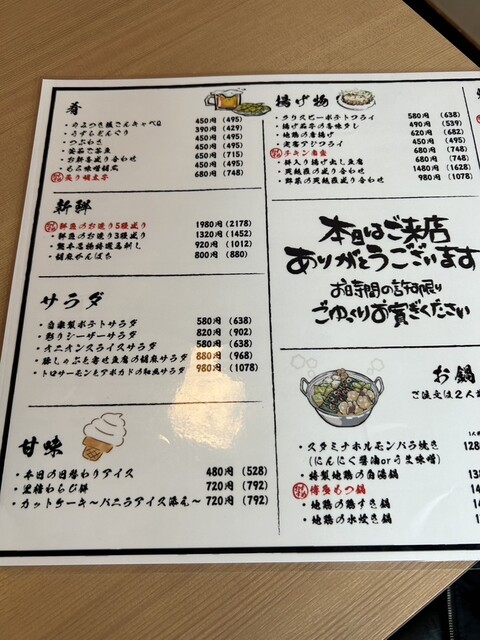 肴
・やみつき塩ごんキャベQ 450円 (495)
・うずらたんぐり 390円 (429)
・つぶわさ 450円 (495)
450円 (495)
・お新香盛り合わせ 650円 (715)
・もろ味噌胡瓜 450円 (495)
炙り明太子 680円 (748)
新鮮
鮮魚のお造り5種盛り 1980円 (2178)
・鮮魚のお造り3種盛り 1320円 (1452)
・熊本名物桜馬刺し 920円 (1012)
・胡麻かんぱち 800円 (880)
サラダ
・自家製ポテトサラダ 580円 (638)
・彩りシーザーサラダ 820円 (902)
・オニオンスライスサラダ 580円 (638)
・豚しゃぶと寄せ豆腐の胡麻サラダ 880円 (968)
・トロサーモンとアボカドの和風サラダ 980円 (1078)
甘味
・本日の日替わりアイス 480円 (528)
・黒糖わらび餅 720円 (792)
・カットケーキ〜バニラアイス添え〜 720円 (792)
揚げ物
・クリスピーポテトフライ 580円 (638)
・揚げ茄子の 490円 (539)
・地鶏の唐揚げ 620円 (682)
・定番アジフライ 450円 (495)
チキン南蛮 680円 (748)
・餅入り揚げ出し豆腐 680円 (748)
・天麩羅の盛り合わせ 1480円 (1628)
・野菜の天麩羅盛り合わせ 980円 (1078)
本日はご来店
ありがとうございます
お時間の許す限り
ごゆっくりお寛ぎください
お鍋
ご注文は2人
・スタミナホルモンバラ焼き 128
(にんにく醤油orうま味噌)
・特製地鶏の白湯鍋 138
博多もつ鍋 14
・地鶏の鶏すき鍋 14
・地鶏の水炊き鍋